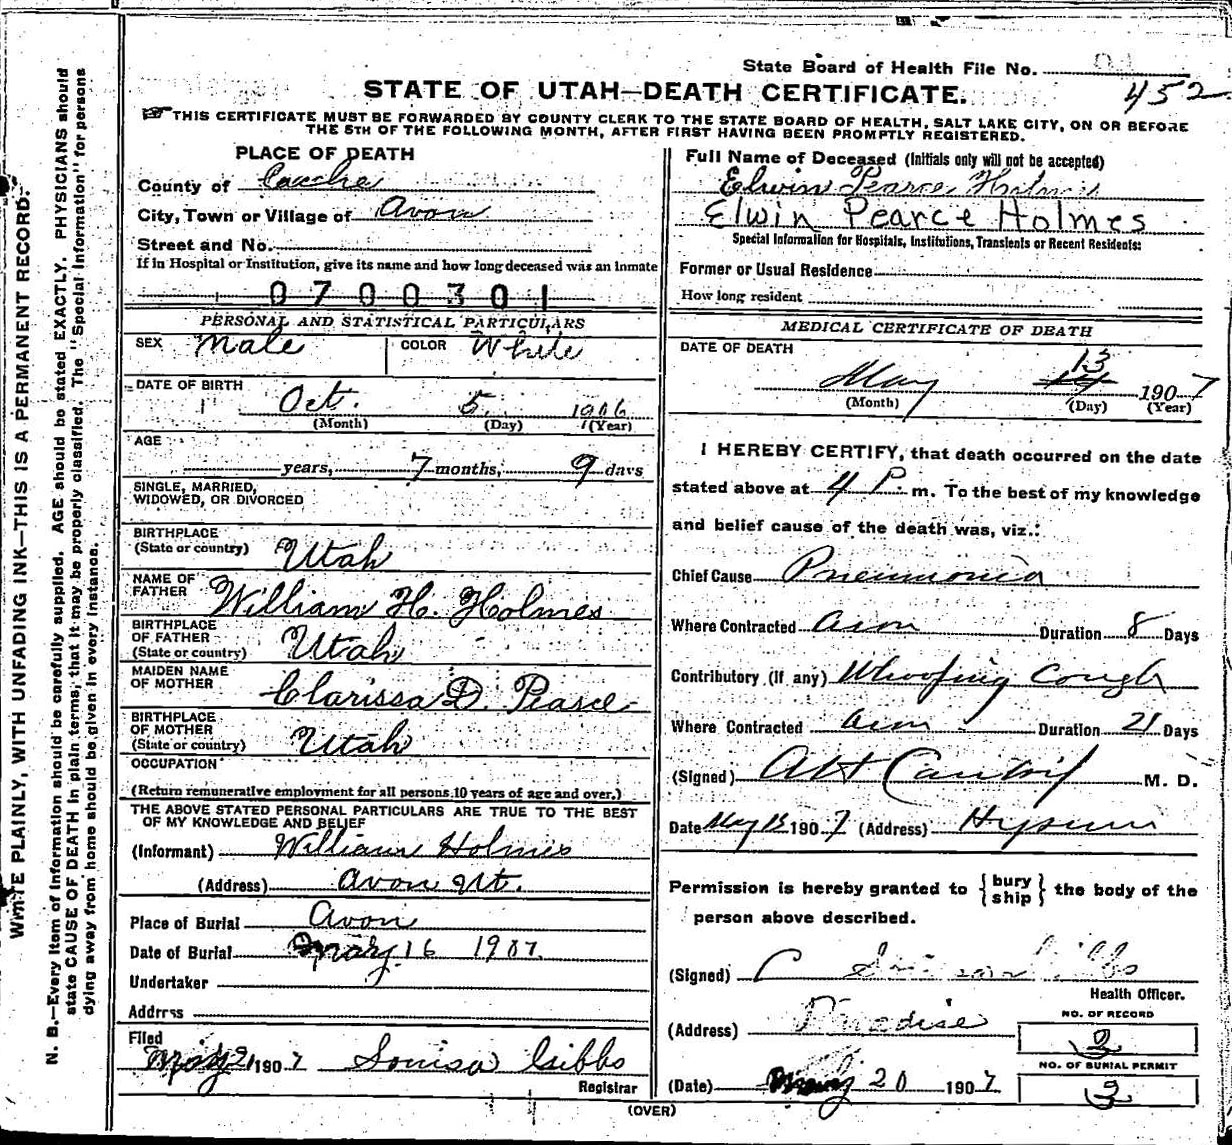 State Board of Health File No.
452
STATE OF UTAH—DEATH CERTIFICATE.
THIS CERTIFICATE MUST BE FORWARDED BY COUNTY CLERK TO THE STATE BOARD OF HEALTH, SALT LAKE CITY, ON OR BEFORE
THE 5TH OF THE FOLLOWING MONTH, AFTER FIRST HAVING BEEN PROMPTLY REGISTERED.
WRITE PLAINLY, WITH UNFADING INK—THIS IS A PERMANENT RECORD.
N. B.—Every item of information should be carefully supplied. AGE should be stated EXACTLY. PHYSICIANS should
state CAUSE OF DEATH in plain terms, that it may be properly classified. The "Special Information" for persons
dying away from home should be given in every instance.
PLACE OF DEATH
County of Cache
City, Town or Village of Avon
Street and No.
If in Hospital or Institution, give its name and how long deceased was an inmate
0700301
PERSONAL AND STATISTICAL PARTICULARS
SEX Male COLOR White
DATE OF BIRTH
Oct. 5 1906
(Month) (Day) (Year)
AGE
years, 7 months, 9 days
SINGLE, MARRIED,
WIDOWED, OR DIVORCED
BIRTHPLACE
(State or country) Utah
NAME OF
FATHER William H. Holmes
BIRTHPLACE
OF FATHER
(State or country) Utah
MAIDEN NAME
OF MOTHER Clarissa D. Pearce
BIRTHPLACE
OF MOTHER
(State or country) Utah
OCCUPATION
(Return remunerative employment for all persons 10 years of age and over.)
THE ABOVE STATED PERSONAL PARTICULARS ARE TRUE TO THE BEST
OF MY KNOWLEDGE AND BELIEF
(Informant) William Holmes
(Address) Avon Ut.
Place of Burial Avon
Date of Burial May 16 1907.
Undertaker
Address
Filed
May 21 1907 Louisa Gibbs
Registrar
Full Name of Deceased (Initials only will not be accepted)
Elwin Pearce Holmes
Elwin Pearce Holmes
Special Information for Hospitals, Institutions, Transients or Recent Residents:
Former or Usual Residence
How long resident
MEDICAL CERTIFICATE OF DEATH
DATE OF DEATH
13
May 14 1907
(Month) (Day) (Year)
I HEREBY CERTIFY, that death occurred on the date
stated above at 4 P. m. To the best of my knowledge
and belief cause of the death was, viz.:
Chief Cause Pneumonia
Where Contracted Avon Duration 8 Days
Contributory (If any) Whoofing Cough
Where Contracted Avon Duration 21 Days
(Signed) M. D.
Date May 13 1907 (Address) Hyrum
Permission is hereby granted to { bury
ship } the body of the
person above described.
(Signed) Gibbs
Health Officer.
(Address) Paradise
NO. OF RECORD
3
NO. OF BURIAL PERMIT
3
(Date) May 20 1907
(OVER)